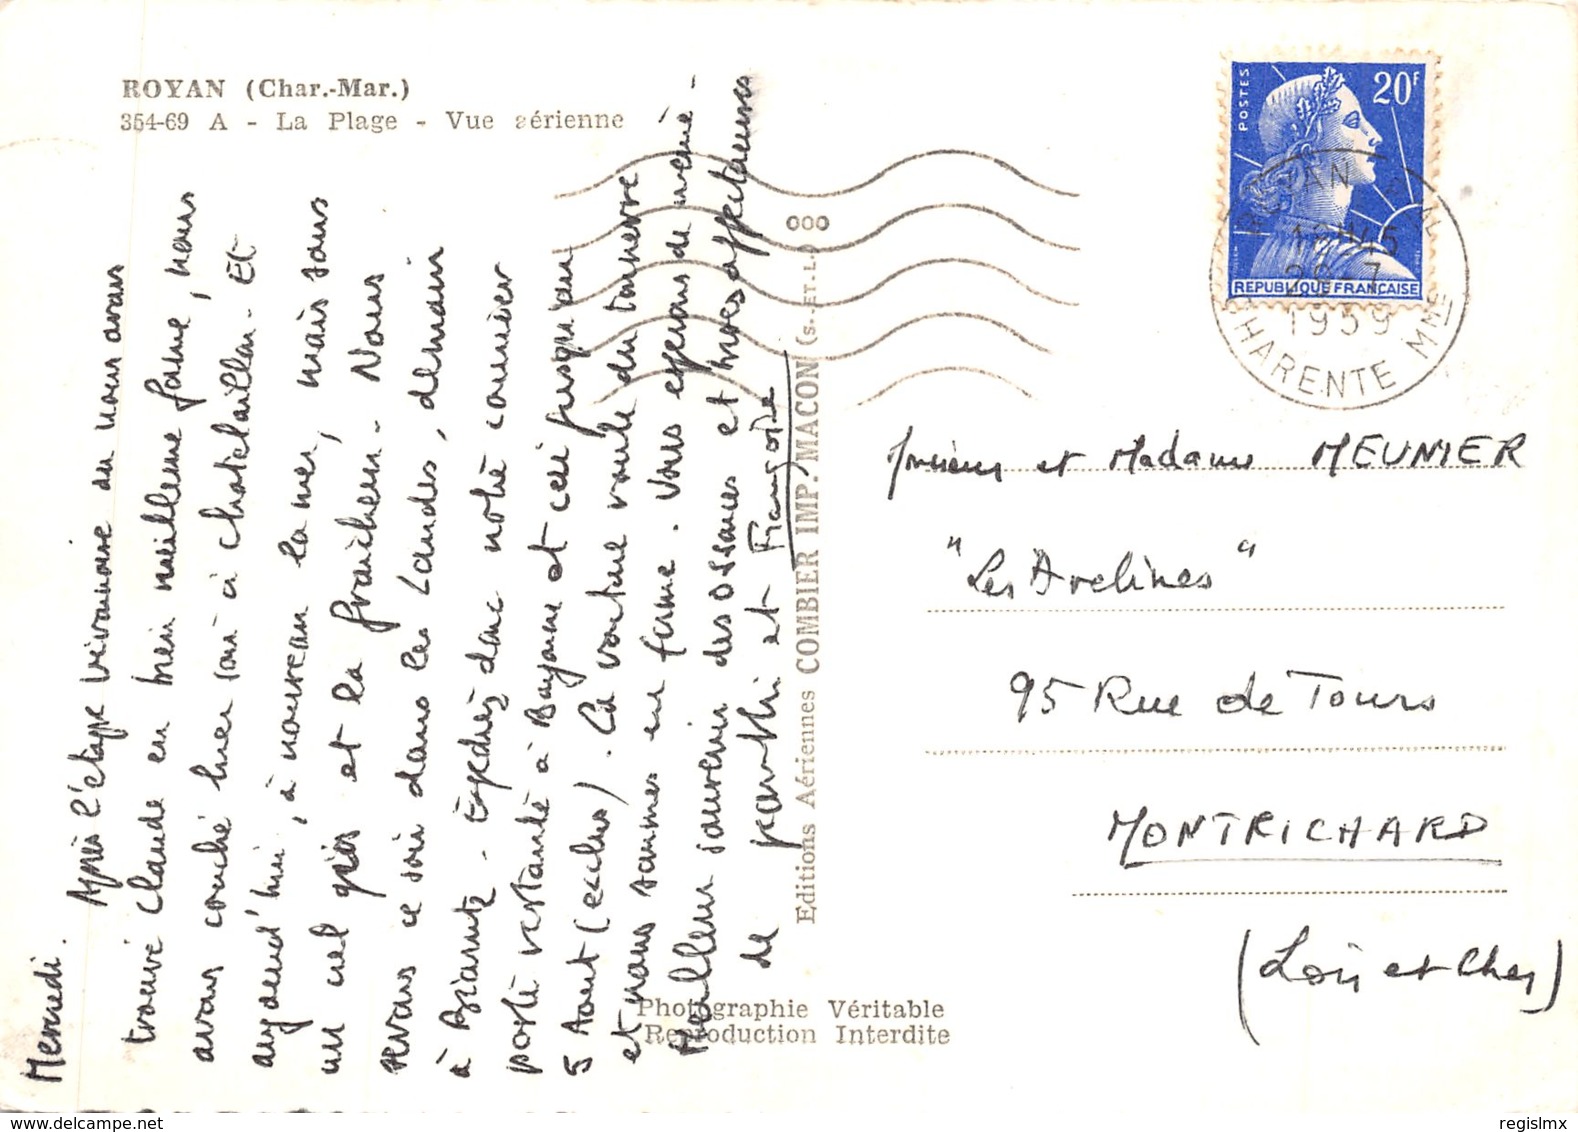 ROYAN (Char.-Mar.)
354-69 A - La Plage - Vue aérienne
Mercredi.
Après l'étape vivonnaise où nous avons
trouvé Claude en bien meilleure forme, nous
avons couché hier soir à Chatelaillon. Et
aujourd'hui, à nouveau la mer, mais sous
un ciel gris et la fraîcheur. Nous
serons ce soir dans les Landes, demain
à Biarritz. Expédiez donc notre courrier
poste restante à Bayonne et ceci jusqu'au
5 Aout (exclus). La voiture roule du tonnerre
et nous sommes en forme. Vous espérons de même.
Meilleur souvenir des et affectueuses
de et Françoise
Editions Aériennes COMBIER IMP. MACON (S.-ET-L.)
Photographie Véritable
Reproduction Interdite
000
POSTES
20F
REPUBLIQUE FRANÇAISE
ROYAN
1959
CHARENTE MME
Monsieur et Madame MEUNIER
"Les Avelines"
95 Rue de Tours
MONTRICHARD
(Loir et Cher)
delcampe.net
regislmx